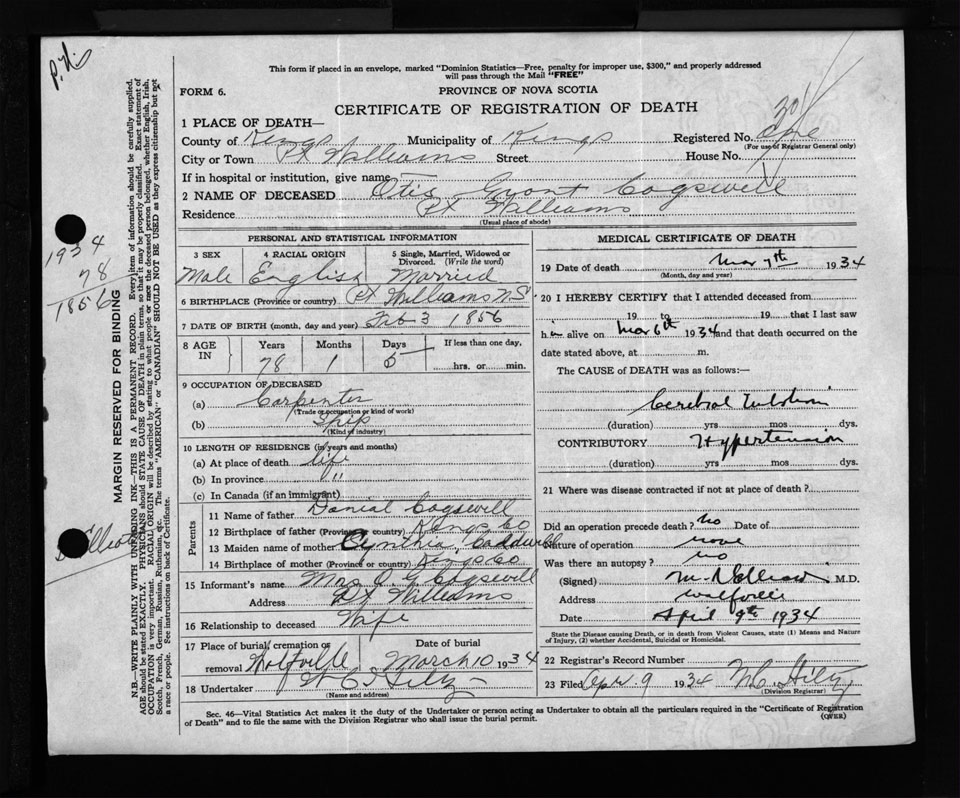 P.N.
This form if placed in an envelope, marked "Dominion Statistics—Free, penalty for improper use, $300," and properly addressed
will pass through the Mail "FREE"
FORM 6.
PROVINCE OF NOVA SCOTIA
CERTIFICATE OF REGISTRATION OF DEATH
1 PLACE OF DEATH—
County of Kings Municipality of Kings Registered No.
(For use of Registrar General only)
City or Town Pt Williams Street House No.
If in hospital or institution, give name
2 NAME OF DECEASED Otis Grant Cogswell
Residence Pt Williams
(Usual place of abode)
PERSONAL AND STATISTICAL INFORMATION
3 SEX 4 RACIAL ORIGIN 5 Single, Married, Widowed or Divorced. (Write the word)
Male English Married
6 BIRTHPLACE (Province or country) Pt Williams N.S
7 DATE OF BIRTH (month, day and year) Feb 3 1856
8 AGE IN Years Months Days If less than one day,
78 1 5 hrs. or min.
9 OCCUPATION OF DECEASED
(a) Carpenter
(Trade or occupation or kind of work)
(b) Ship
(Kind of industry)
10 LENGTH OF RESIDENCE (in years and months)
(a) At place of death life
(b) In province "
(c) In Canada (if an immigrant)
Parents
11 Name of father Danial Cogswell
12 Birthplace of father (Province or country) Kings Co
13 Maiden name of mother Cynthia Caldwell
14 Birthplace of mother (Province or country) Kings Co
15 Informant's name Mrs O. G. Cogswell
Address Pt Williams
16 Relationship to deceased Wife
17 Place of burial, cremation or removal Wolfville Date of burial March 10 1934
18 Undertaker W C Hiltz
(Name and address)
MEDICAL CERTIFICATE OF DEATH
19 Date of death Mar 7th 1934
(Month, day and year)
20 I HEREBY CERTIFY that I attended deceased from
19 to 19 that I last saw
him alive on Mar 6th 1934 and that death occurred on the
date stated above, at m.
The CAUSE of DEATH was as follows:—
Cerebral
(duration) yrs mos dys.
CONTRIBUTORY Hypertension
(duration) yrs mos dys.
21 Where was disease contracted if not at place of death?
Did an operation precede death? no Date of
Nature of operation none
Was there an autopsy? no
(Signed) M.D.
Address Wolfville
Date April 9th 1934
State the Disease causing Death, or in death from Violent Causes, state (1) Means and Nature
of Injury, (2) whether Accidental, Suicidal or Homicidal.
22 Registrar's Record Number
23 Filed Apr 9 1934 W C Hiltz
(Division Registrar)
Sec. 46—Vital Statistics Act makes it the duty of the Undertaker or person acting as Undertaker to obtain all the particulars required in the "Certificate of Registration
of Death" and to file the same with the Division Registrar who shall issue the burial permit.
(OVER)
1934
78
1856
MARGIN RESERVED FOR BINDING
N.B.—WRITE PLAINLY WITH UNFADING INK—THIS IS A PERMANENT RECORD. Every item of information should be carefully supplied.
AGE should be stated EXACTLY. PHYSICIANS should STATE CAUSE OF DEATH in plain terms, so that it may be properly classified. Exact statement of
OCCUPATION is very important. RACIAL ORIGIN will be described by stating to what people or race the deceased person belonged, whether English, Irish,
Scotch, French, German, Russian, Ruthenian, etc. The terms "AMERICAN" or "CANADIAN" SHOULD NOT BE USED as they express citizenship but not
a race or people. See instructions on back of Certificate.